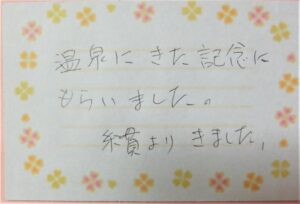 温泉に きた 記念に
もらいました。
糸貫より きました,